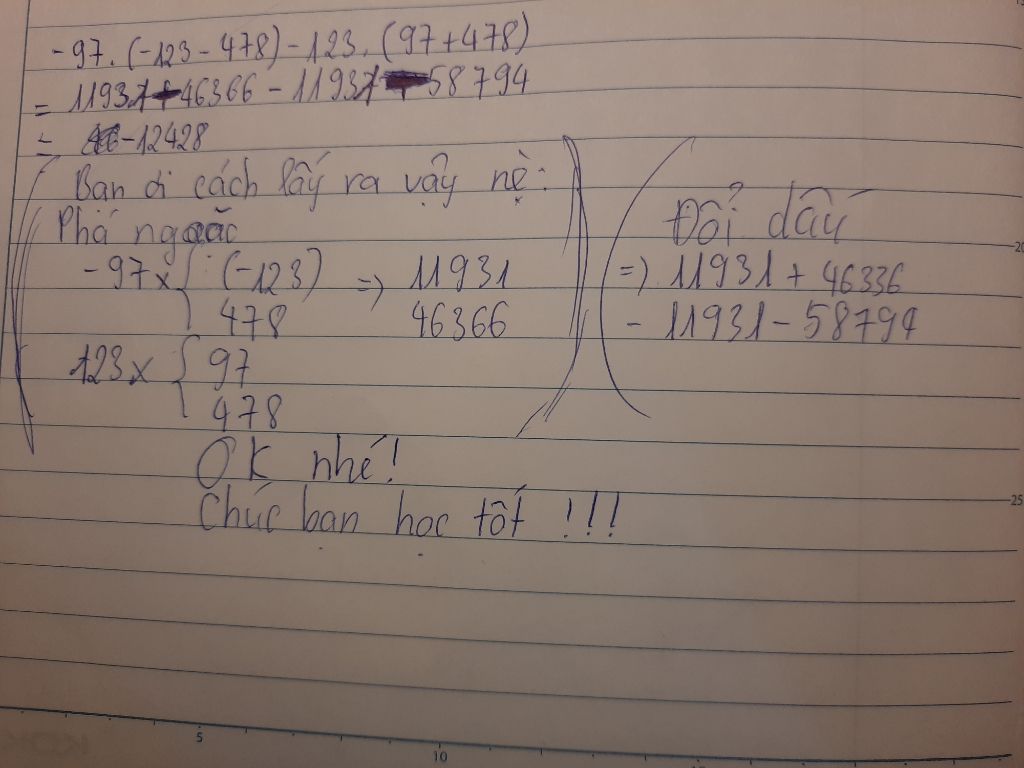 -97. (-123 - 478) - 123. (97 + 478)
= 11931 + 46366 - 11931 - 58794
= -12428
Bạn ơi cách lấy ra vậy nè:
Phá ngoặc
-97 x { (-123) => 11931
478 46366
123 x { 97
478
Đổi dấu
=) 11931 + 46336
- 11931 - 58794
OK nhé!
Chúc bạn học tốt !!!
5
10
20
25